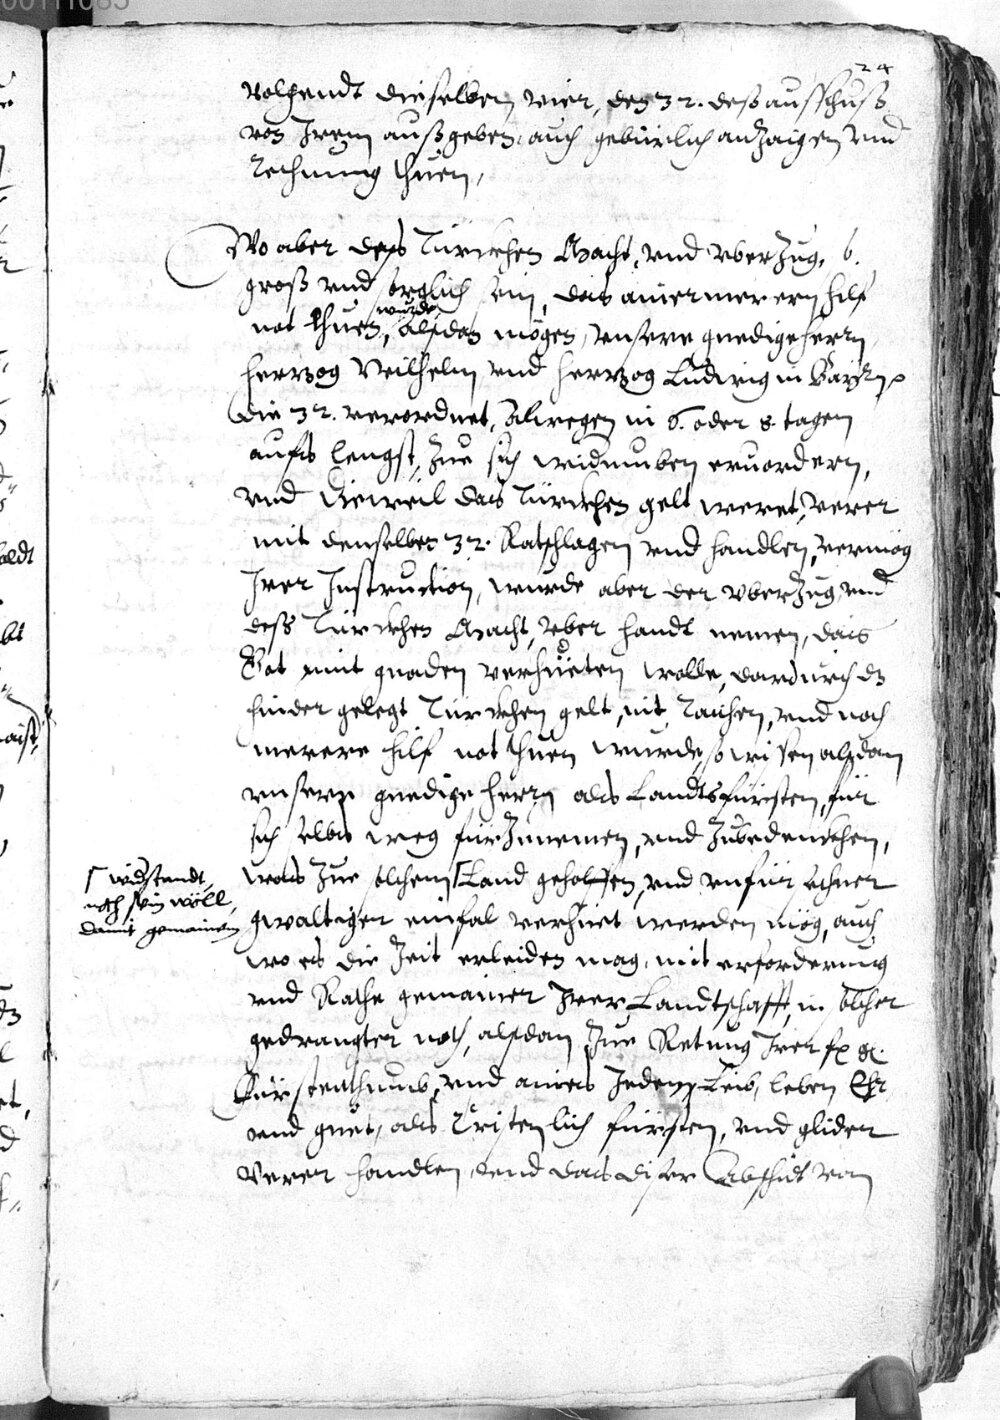 24
volgendt dieselben vier, den 32. deß ausschuß
von Irem außgeben, auch gebürlich anzaigen vnd
Rechnung thuen,
Wo aber des Türckhen Macht, vnd vberzug, so
groß vnd sorglich sein, das ainer merern hilf
not thuen, würde, alsdan mögen, vnsere gnedige herrn
herzog Wilhelm vnd herzog Ludwig in Bayrn
die 32. verordnet, Alwegen in 6. oder 8. tagen
aufs lengst, zue sich widerumben eruordern,
vnd dieweil das Türckhen gelt weret, verer
mit denselben 32. Ratschlagen vnd handlen, vermög
Irer Instruction, wurde aber der vberzug vnd
deß Türckhen Macht, vber handt nemen, das
Got mit gnaden verhüeten wolle, dardurch dz
hinder gelegt Türckhen gelt, nit Raichen, vnd noch
merere hilf not thuen wurde, so wissen alsdan
vnsere gnedige herrn als Landtsfürsten, für
sich selbs weg fürzunemen, vnd zubedenckhen,
was zue solchem ⌈ Land geholffen, vnd vnfürsechner
⌈ widstandt,
noch sein wöll,
damit gemainem
gwaltiger einfal verhüet werden mög, auch
wo es die Zeit erleiden mag, mit erforderung
vnd Rathe gemainer Irer Landtschafft, in solcher
gedrangter noth, alsdan zue Retung Irer fr. gn.
Fürstenthumb, vnd aines Jeden Leib, leben Ehr
vnd guet, als Cristenlich fürsten, vnd glider
verer handlen, vnd das diser Abschidt von